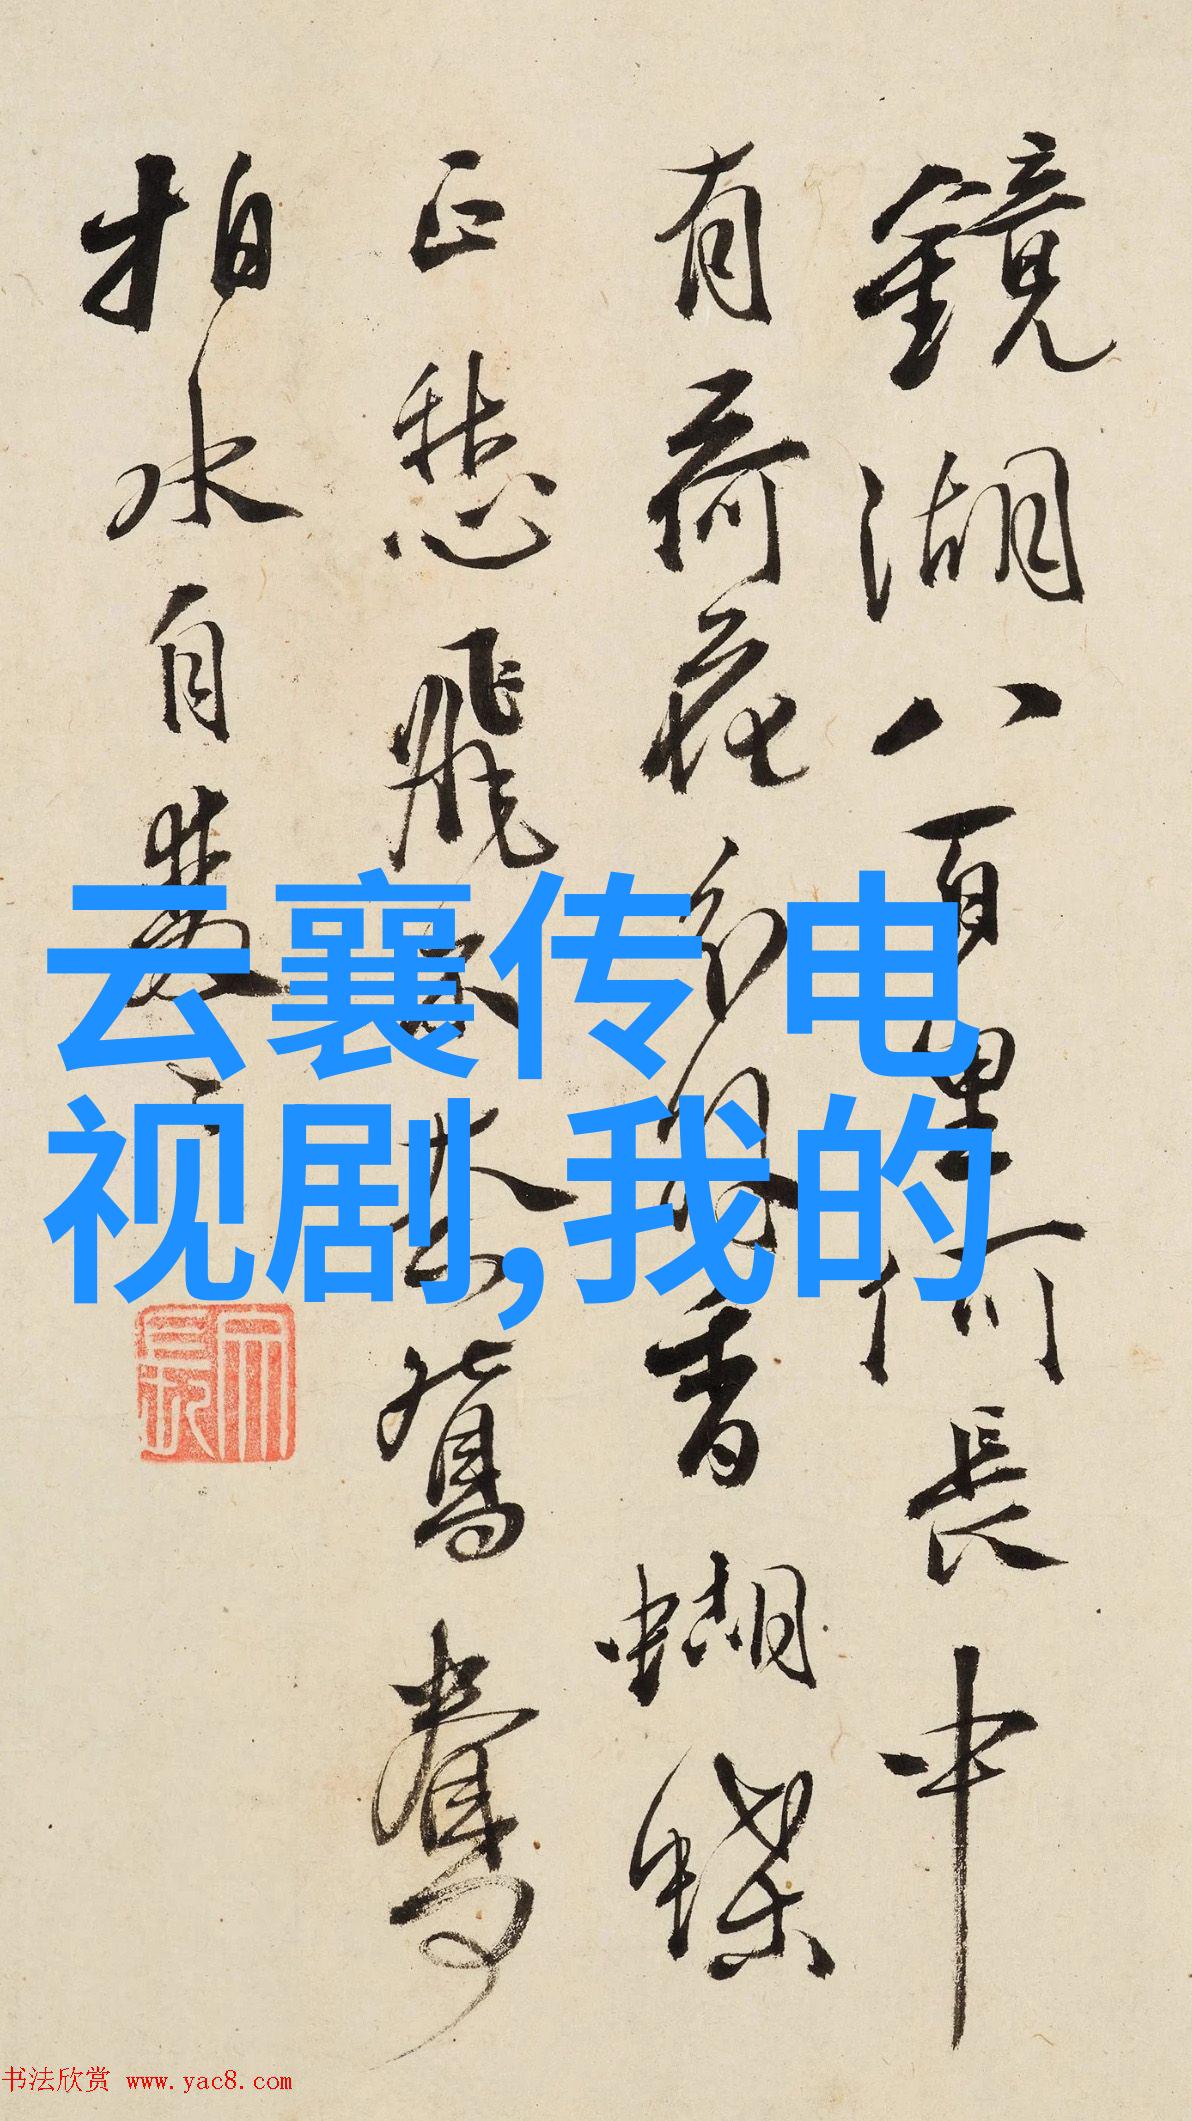 鏡湖八百里何長中
有荷花分香蝴蝶
正愁飛不鴛鴦
拍水自雙
云襄传 电
视剧,我的
书法欣赏 www.yac8.com